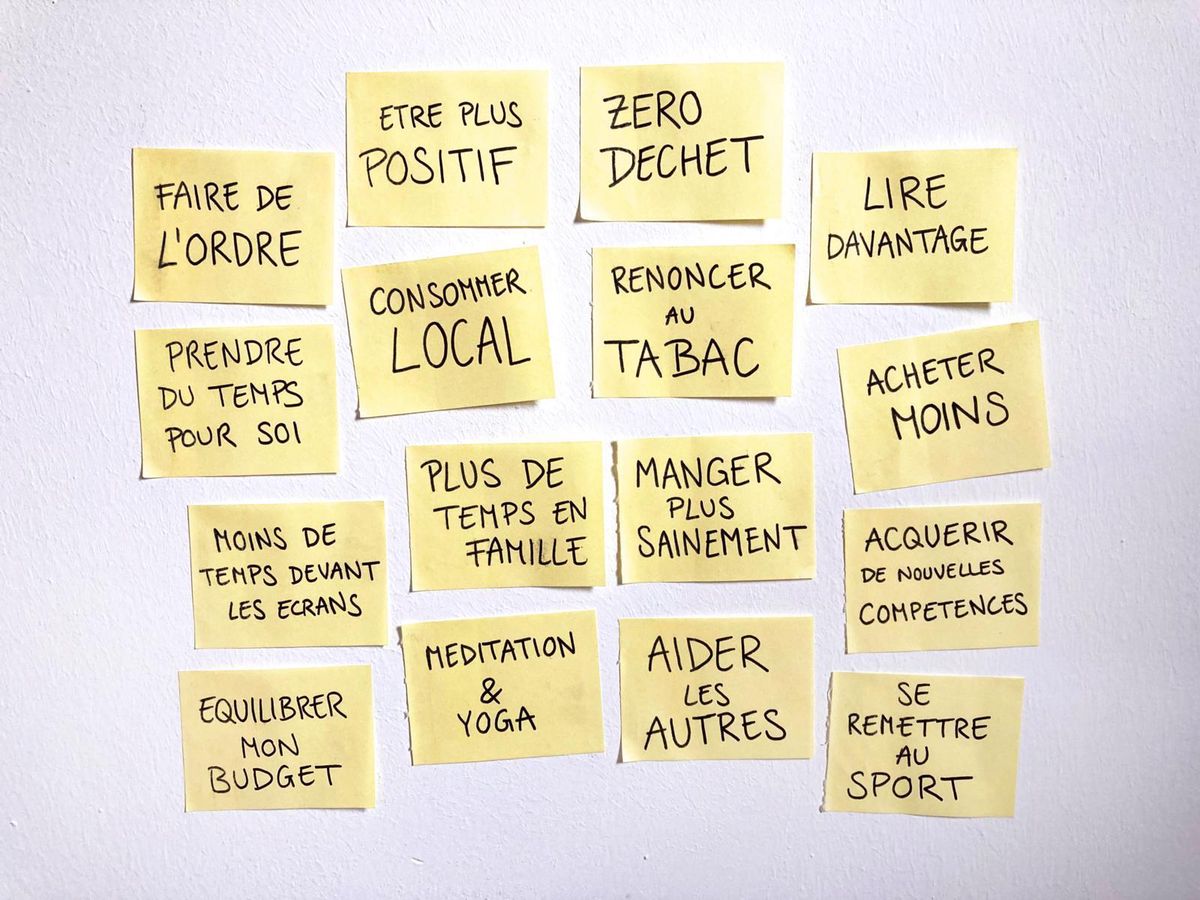 FAIRE DE
L'ORDRE
ETRE PLUS
POSITIF
ZERO
DECHET
LIRE
DAVANTAGE
PRENDRE
DU TEMPS
POUR SOI
CONSOMMER
LOCAL
RENONCER
AU
TABAC
ACHETER
MOINS
MOINS DE
TEMPS DEVANT
LES ECRANS
PLUS DE
TEMPS EN
FAMILLE
MANGER
PLUS
SAINEMENT
ACQUERIR
DE NOUVELLES
COMPETENCES
EQUILIBRER
MON
BUDGET
MEDITATION
&
YOGA
AIDER
LES
AUTRES
SE
REMETTRE
AU
SPORT